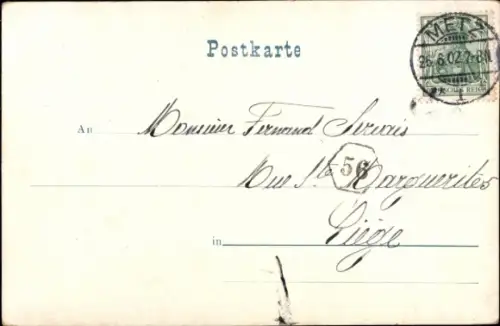 METZ
26.6.02.7-8N.
* 1
Postkarte
An Monsieur Fernand Servais
56
Rue Ste Marguerites
in Liège